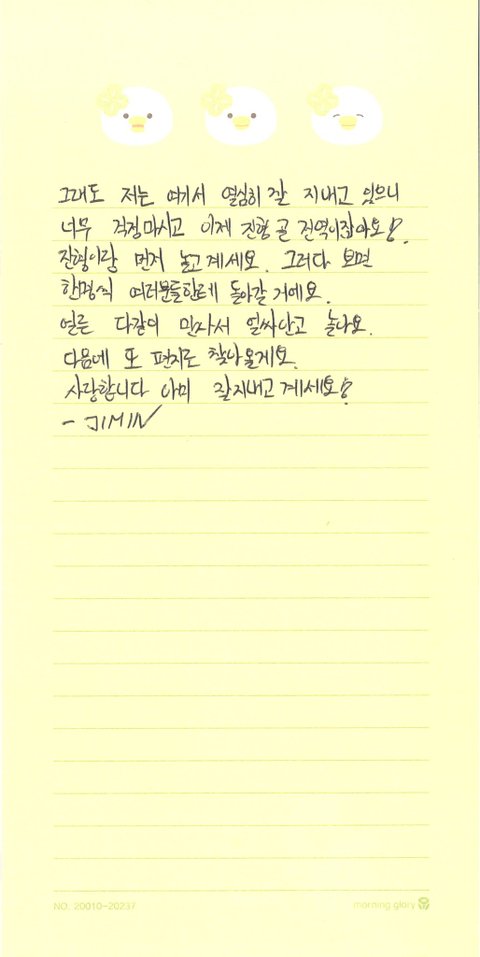 그래도 저는 여기서 열심히 잘 지내고 있으니
너무 걱정마시고 이제 진형 곧 전역이잖아요!
진형이랑 먼저 놀고 계세요. 그러다 보면
한명씩 여러분들한테 돌아갈 거예요.
얼른 다같이 만나서 얼싸안고 놀아요.
다음에 또 편지로 찾아올게요.
사랑합니다 아미 잘 지내고 계세요!
- JIMIN
NO. 20010-20237
morning glory